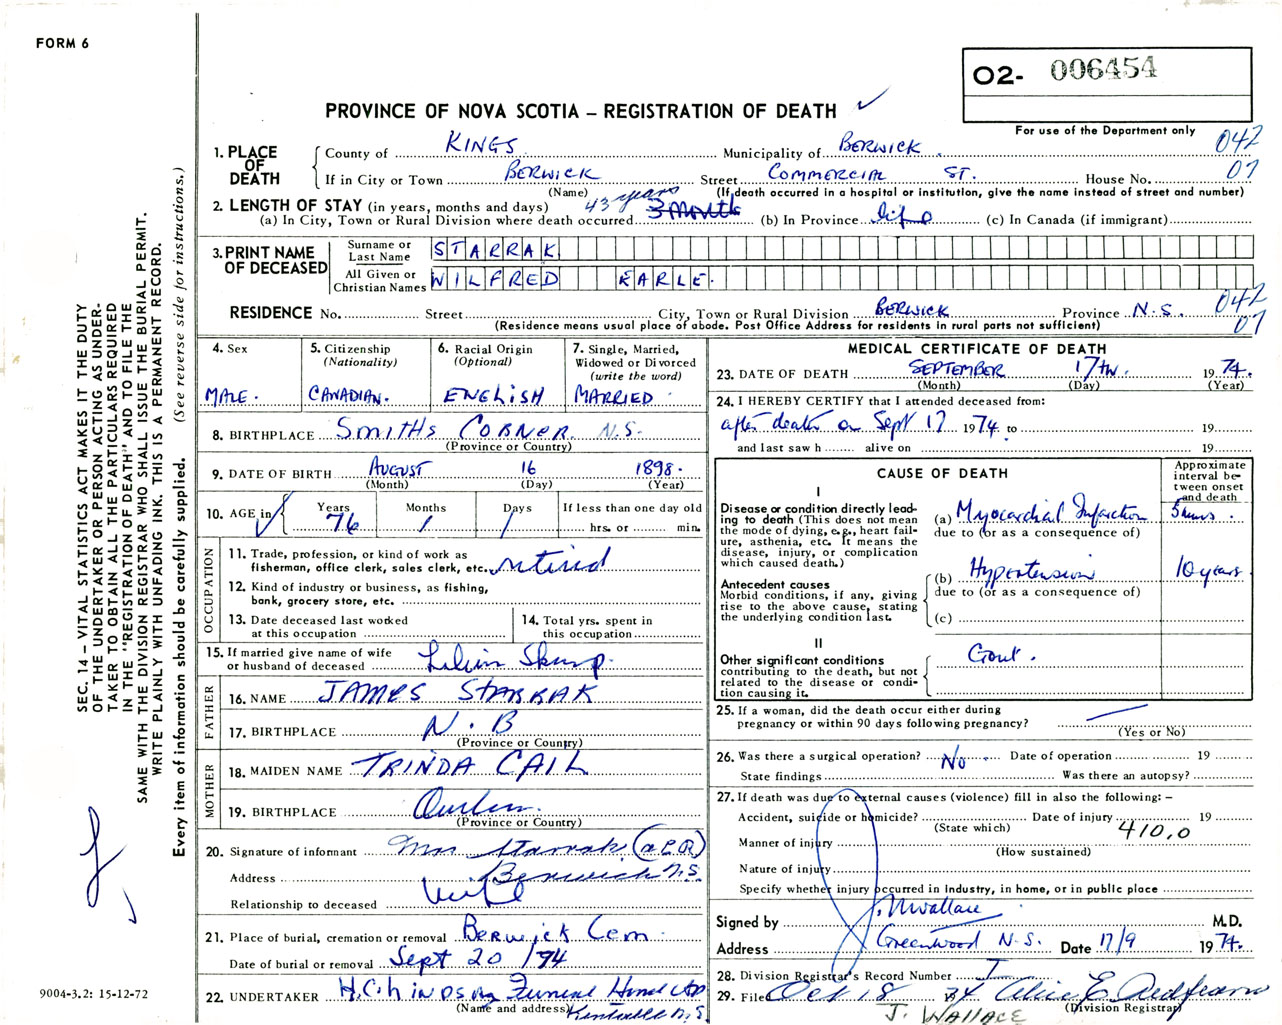 FORM 6
O2- 006454
PROVINCE OF NOVA SCOTIA – REGISTRATION OF DEATH ✓
For use of the Department only
042
07
1. PLACE OF DEATH
County of KINGS Municipality of BERWICK
If in City or Town BERWICK Street COMMERCIAL ST. House No.
(Name) (If death occurred in a hospital or institution, give the name instead of street and number)
2. LENGTH OF STAY (in years, months and days) 43 years
(a) In City, Town or Rural Division where death occurred 3 month (b) In Province life (c) In Canada (if immigrant)
3. PRINT NAME OF DECEASED
Surname or Last Name STARRAK
All Given or Christian Names WILFRED EARLE.
RESIDENCE No. Street City, Town or Rural Division BERWICK Province N.S. 042
07
(Residence means usual place of abode. Post Office Address for residents in rural parts not sufficient)
4. Sex
MALE.
5. Citizenship
(Nationality)
CANADIAN.
6. Racial Origin
(Optional)
ENGLISH
7. Single, Married,
Widowed or Divorced
(write the word)
MARRIED
8. BIRTHPLACE SMITHS CORNER N.S.
(Province or Country)
9. DATE OF BIRTH AUGUST 16 1898.
(Month) (Day) (Year)
10. AGE in Years 76 Months 1 Days 1 If less than one day old
hrs. or min.
OCCUPATION
11. Trade, profession, or kind of work as
fisherman, office clerk, sales clerk, etc. retired
12. Kind of industry or business, as fishing,
bank, grocery store, etc.
13. Date deceased last worked
at this occupation
14. Total yrs. spent in
this occupation
15. If married give name of wife
or husband of deceased Lilian
FATHER
16. NAME JAMES STARRAK
17. BIRTHPLACE N.B
(Province or Country)
MOTHER
18. MAIDEN NAME TRINDA CAIL
19. BIRTHPLACE
(Province or Country)
20. Signature of informant Mrs Starrak
Address Berwick N.S.
Relationship to deceased wife
21. Place of burial, cremation or removal Berwick Cem.
Date of burial or removal Sept 20 /74
22. UNDERTAKER H.C. Lindsay Funeral Home Ltd
(Name and address) Kentville N.S.
MEDICAL CERTIFICATE OF DEATH
23. DATE OF DEATH SEPTEMBER 17TH. 1974.
(Month) (Day) (Year)
24. I HEREBY CERTIFY that I attended deceased from:
after death on Sept 17 1974 to 19
and last saw h alive on 19
CAUSE OF DEATH
Approximate
interval be-
tween onset
and death
I
Disease or condition directly lead-
ing to death (This does not mean
the mode of dying, e.g., heart fail-
ure, asthenia, etc. It means the
disease, injury, or complication
which caused death.)
(a) Myocardial Infarction 5 hours.
due to (or as a consequence of)
Antecedent causes
Morbid conditions, if any, giving
rise to the above cause, stating
the underlying condition last.
(b) Hypertension 10 years
due to (or as a consequence of)
(c)
II
Other significant conditions
contributing to the death, but not
related to the disease or condi-
tion causing it.
Gout.
25. If a woman, did the death occur either during
pregnancy or within 90 days following pregnancy?
(Yes or No)
26. Was there a surgical operation? No Date of operation 19
State findings Was there an autopsy?
27. If death was due to external causes (violence) fill in also the following: –
Accident, suicide or homicide? Date of injury 19
(State which)
410.0
Manner of injury
(How sustained)
Nature of injury
Specify whether injury occurred in industry, in home, or in public place
Signed by J. Wallace M.D.
Address Greenwood N.S. Date 17/9 1974.
28. Division Registrar's Record Number
29. Filed Oct 18 74 Alice E. Redfearn
(Division Registrar)
J. WALLACE
SEC. 14 – VITAL STATISTICS ACT MAKES IT THE DUTY
OF THE UNDERTAKER OR PERSON ACTING AS UNDER-
TAKER TO OBTAIN ALL THE PARTICULARS REQUIRED
IN THE "REGISTRATION OF DEATH" AND TO FILE THE
SAME WITH THE DIVISION REGISTRAR WHO SHALL ISSUE THE BURIAL PERMIT.
WRITE PLAINLY WITH UNFADING INK. THIS IS A PERMANENT RECORD.
Every item of information should be carefully supplied. (See reverse side for instructions.)
9004-3.2: 15-12-72